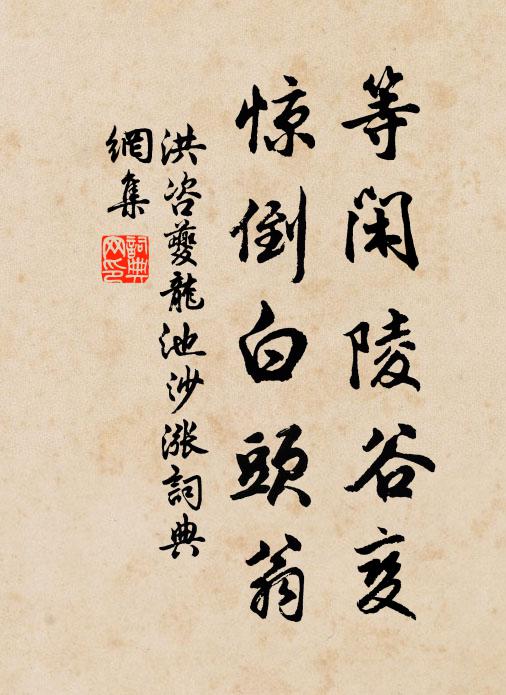 等闲陵谷变
惊倒白頭翁
洪咨夔龍池沙漲詞典
網集
詞典网印